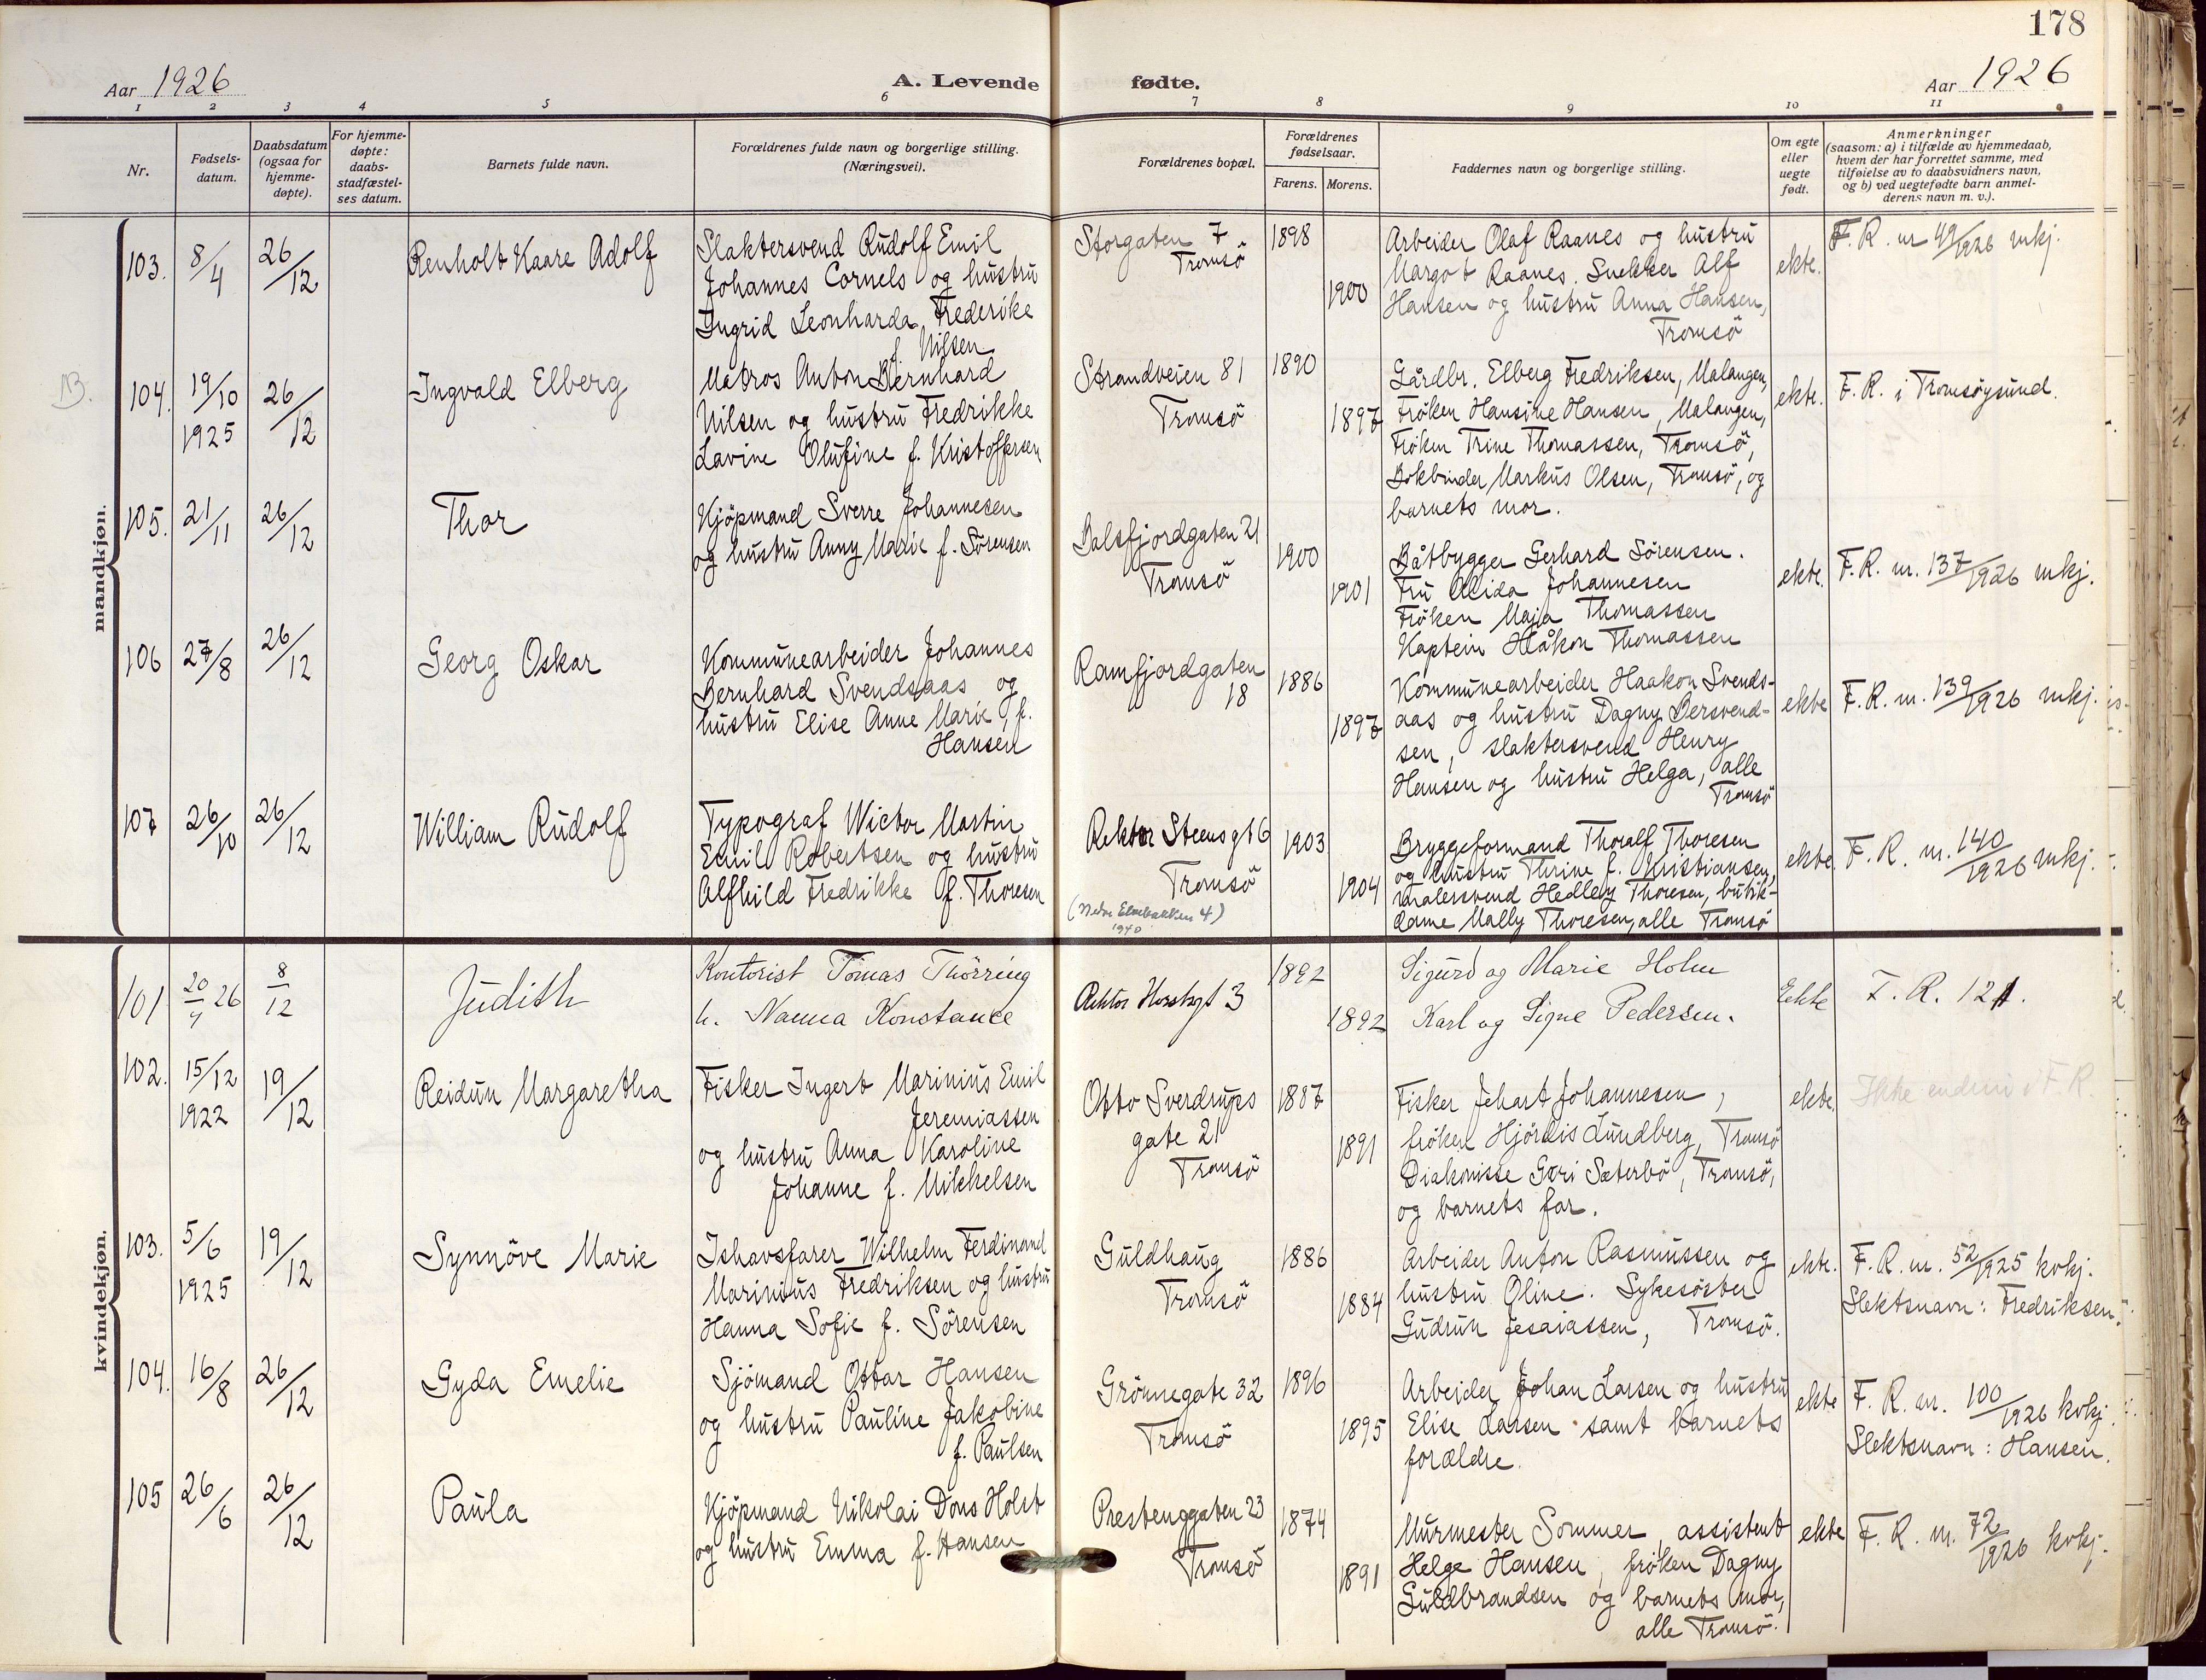 178
Aar 1926
A. Levende fødte.
Aar 1926
1 2 3 4 5 6 7 8 9 10 11
Nr.
Fødsels-
datum.
Daabsdatum
(ogsaa for
hjemme-
døpte).
For hjemme-
døpte:
daabs-
stadfæstel-
ses datum.
Barnets fulde navn.
Forældrenes fulde navn og borgerlige stilling.
(Næringsvei).
Forældrenes bopæl.
Forældrenes
fødselsaar.
Farens. Morens.
Faddernes navn og borgerlige stilling.
Om egte
eller
uegte
født.
Anmerkninger
(saasom: a) i tilfælde av hjemmedaab,
hvem der har forrettet samme, med
tilføielse av to daabsvidners navn,
og b) ved uegtefødte barn anmel-
derens navn m. v.).
mandkjøn.
103. 8/4 26/12
Renholt Kaare Adolf
Slaktersvend Rudolf Emil
Johannes Cornels og hustru
Ingrid Leonharda Frederike
f. Nilsen
Storgaten 7
Tromsö
1898
1900
Arbeider Olaf Raanes og hustru
Margot Raanes. Snekker Alf
Hansen og hustru Anna Hansen,
Tromsö
ekte.
F. R. nr 49/1926 mkj.
NB.
104. 19/10 1925 26/12
Ingvald Elberg
Matros Anton Bernhard
Nilsen og hustru Fredrikke
Lavine Olufine f. Kristoffersen
Strandveien 81
Tromsö
1890
1897
Gårdbr. Elberg Fredriksen, Malangen,
Fröken Hansine Hansen, Malangen,
Fröken Trine Thomassen, Tromsö,
Bokbinder Markus Olsen, Tromsö, og
barnets mor.
ekte.
F. R. i Tromsöysund.
105. 21/11 26/12
Thor
Kjöpmand Sverre Johannesen
og hustru Anny Marie f. Sörensen
Balsfjordgaten 21
Tromsö
1900
1901
Båtbygger Gerhard Sörensen.
Fru Alida Johannesen
Fröken Maja Thomassen
Kaptein Håkon Thomassen
ekte.
F. R. nr. 137/1926 mkj.
106 27/8 26/12
Georg Oskar
Kommunearbeider Johannes
Bernhard Svendsaas og
hustru Elise Anne Marie, f.
Hansen
Ramfjordgaten
18
1886
1897
Kommunearbeider Haakon Svends-
aas og hustru Dagny Bersvend-
sen, slaktersvend Henry
Hansen og hustru Helga, alle
Tromsö
ekte
F. R. nr. 139/1926 mkj.
107 26/10 26/12
William Rudolf
Typograf Wictor Martin
Emil Robertsen og hustru
Alfhild Fredrikke f. Thoresen
Rektor Steens gt 6
Tromsö
(Nedre Elvebakken 4)
1940
1903
1904
Bryggeformand Thoralf Thoresen
og hustru Thrine f. Kristiansen,
malersvend Hedley Thoresen, butik-
dame Mally Thoresen, alle Tromsö
ekte.
F. R. nr. 140/1926 mkj.
kvindekjøn.
101 20/7 26 8/12
Judith
Kontorist Tomas Thörring
h. Nanna Konstance
Rektor Horstsgt 3
1892
1892
Sigurd og Marie Holm
Karl og Signe Pedersen.
Ekte
F. R. 121.
102. 15/12 1922 19/12
Reidun Margaretha
Fisker Ingert Marinius Emil
Jeremiassen
og hustru Anna Karoline
Johanne f. Mikkelsen
Otto Sverdrups
gate 21
Tromsö
1887
1891
Fisker Jehart Johannesen,
fröken Hjördis Lundberg, Tromsö
Diakonisse Guri Sæterbö, Tromsö,
og barnets far.
ekte.
Ikke endnu i F. R.
103. 5/6 1925 19/12
Synnöve Marie
Ishavsfarer Wilhelm Ferdinand
Marinius Fredriksen og hustru
Hanna Sofie f. Sörensen
Guldhaug
Tromsö
1886
1884
Arbeider Anton Rasmussen og
hustru Oline. Sykesöster
Gudrun Jesaiassen, Tromsö.
ekte.
F. R. nr. 52/1925 kvkj.
Slektsnavn: Fredriksen.
104. 16/8 26/12
Gyda Emelie
Sjömand Ottar Hansen
og hustru Pauline Jakobine
f. Paulsen
Grönnegate 32
Tromsö
1896
1895
Arbeider Johan Larsen og hustru
Elise Larsen samt barnets
forældre.
ekte
F. R. nr. 100/1926 kvkj.
Slektsnavn: Hansen.
105 26/6 26/12
Paula
Kjöpmand Nikolai Dons Holst
og hustru Emma f. Hansen
Prestenggaten 23
Tromsö
1874
1891
Murmester Sommer, assistent
Helge Hansen, fröken Dagny
Guldbrandsen og barnets mor,
alle Tromsö.
ekte
F. R. nr. 72/1926 kvkj.